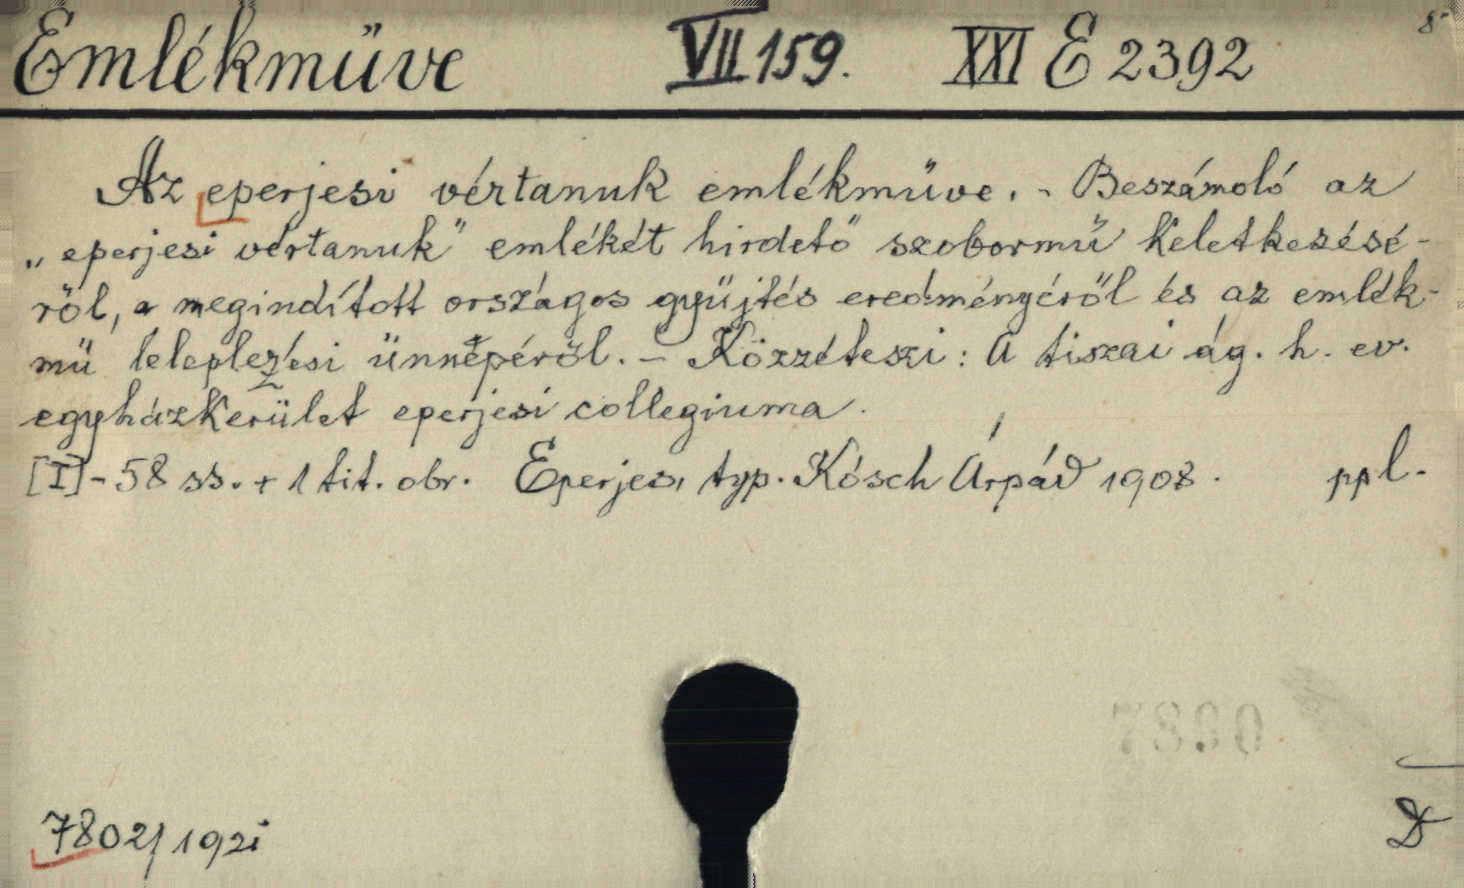 Emlékmüve VII 159. XXI E 2392 8°
Az eperjesi vértanuk emlékmüve. - Beszámoló az
„eperjesi vértanuk” emlékét hirdető szobormű keletkezésé-
ről, a megindított országos gyüjtés eredményéről és az emlék-
mü leleplezési ünnepéről. - Közzéteszi: A tiszai ág. h. ev.
egyházkerület eperjesi collegiuma.
[I]-58 ss. + 1 tit. obr. Eperjes, typ. Kósch Árpád 1908. ppl.
7802/1921
D